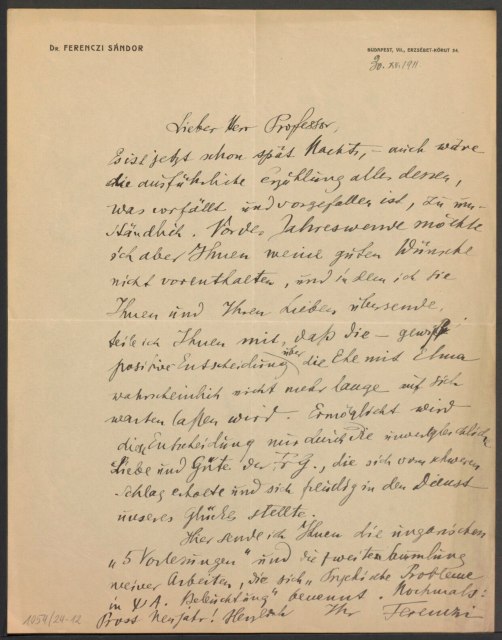 Dr. FERENCZI SÁNDOR
BUDAPEST, VII., ERZSÉBET-KÖRUT 54.
30. XII. 1911
Lieber Herr Professor,
Es ist jetzt schon spät Nachts, – auch wäre
die ausführliche Erzählung alles dessen,
was vorfällt und vorgefallen ist, zu um-
ständlich. Vor der Jahreswende möchte
ich aber Ihnen meine guten Wünsche
nicht vorenthalten, und indem ich sie
Ihnen und Ihren Lieben übersende,
teile ich Ihnen mit, daß die – gewiß
positive Entscheidung über die Ehe mit Elma
wahrscheinlich nicht mehr lange auf sich
warten laßen wird. Ermöglicht wird
die Entscheidung nur durch die unvergleichliche
Liebe und Güte der Fr G., die sich vom schweren
Schlag erholte und sich freudig in den Dienst
unseres Glückes stellte.
Hier sende ich Ihnen die ungarischen
„5 Vorlesungen" und die zweite Sammlung
meiner Arbeiten, die sich „Psychische Probleme
in ΨA. Beleuchtung" benennt. Nochmals:
Prosit Neujahr! Herzlich Ihr Ferenczi
1054/24-12